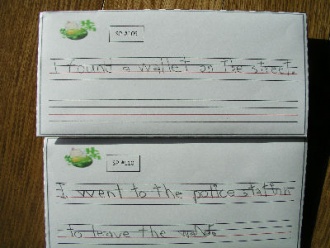 I found a wallet on the street.
I went to the police station
to leave the